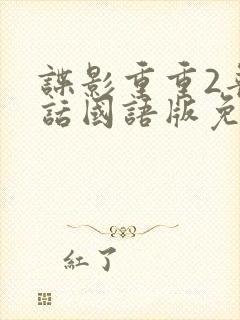 諜影重重2
話國語版免
紅了